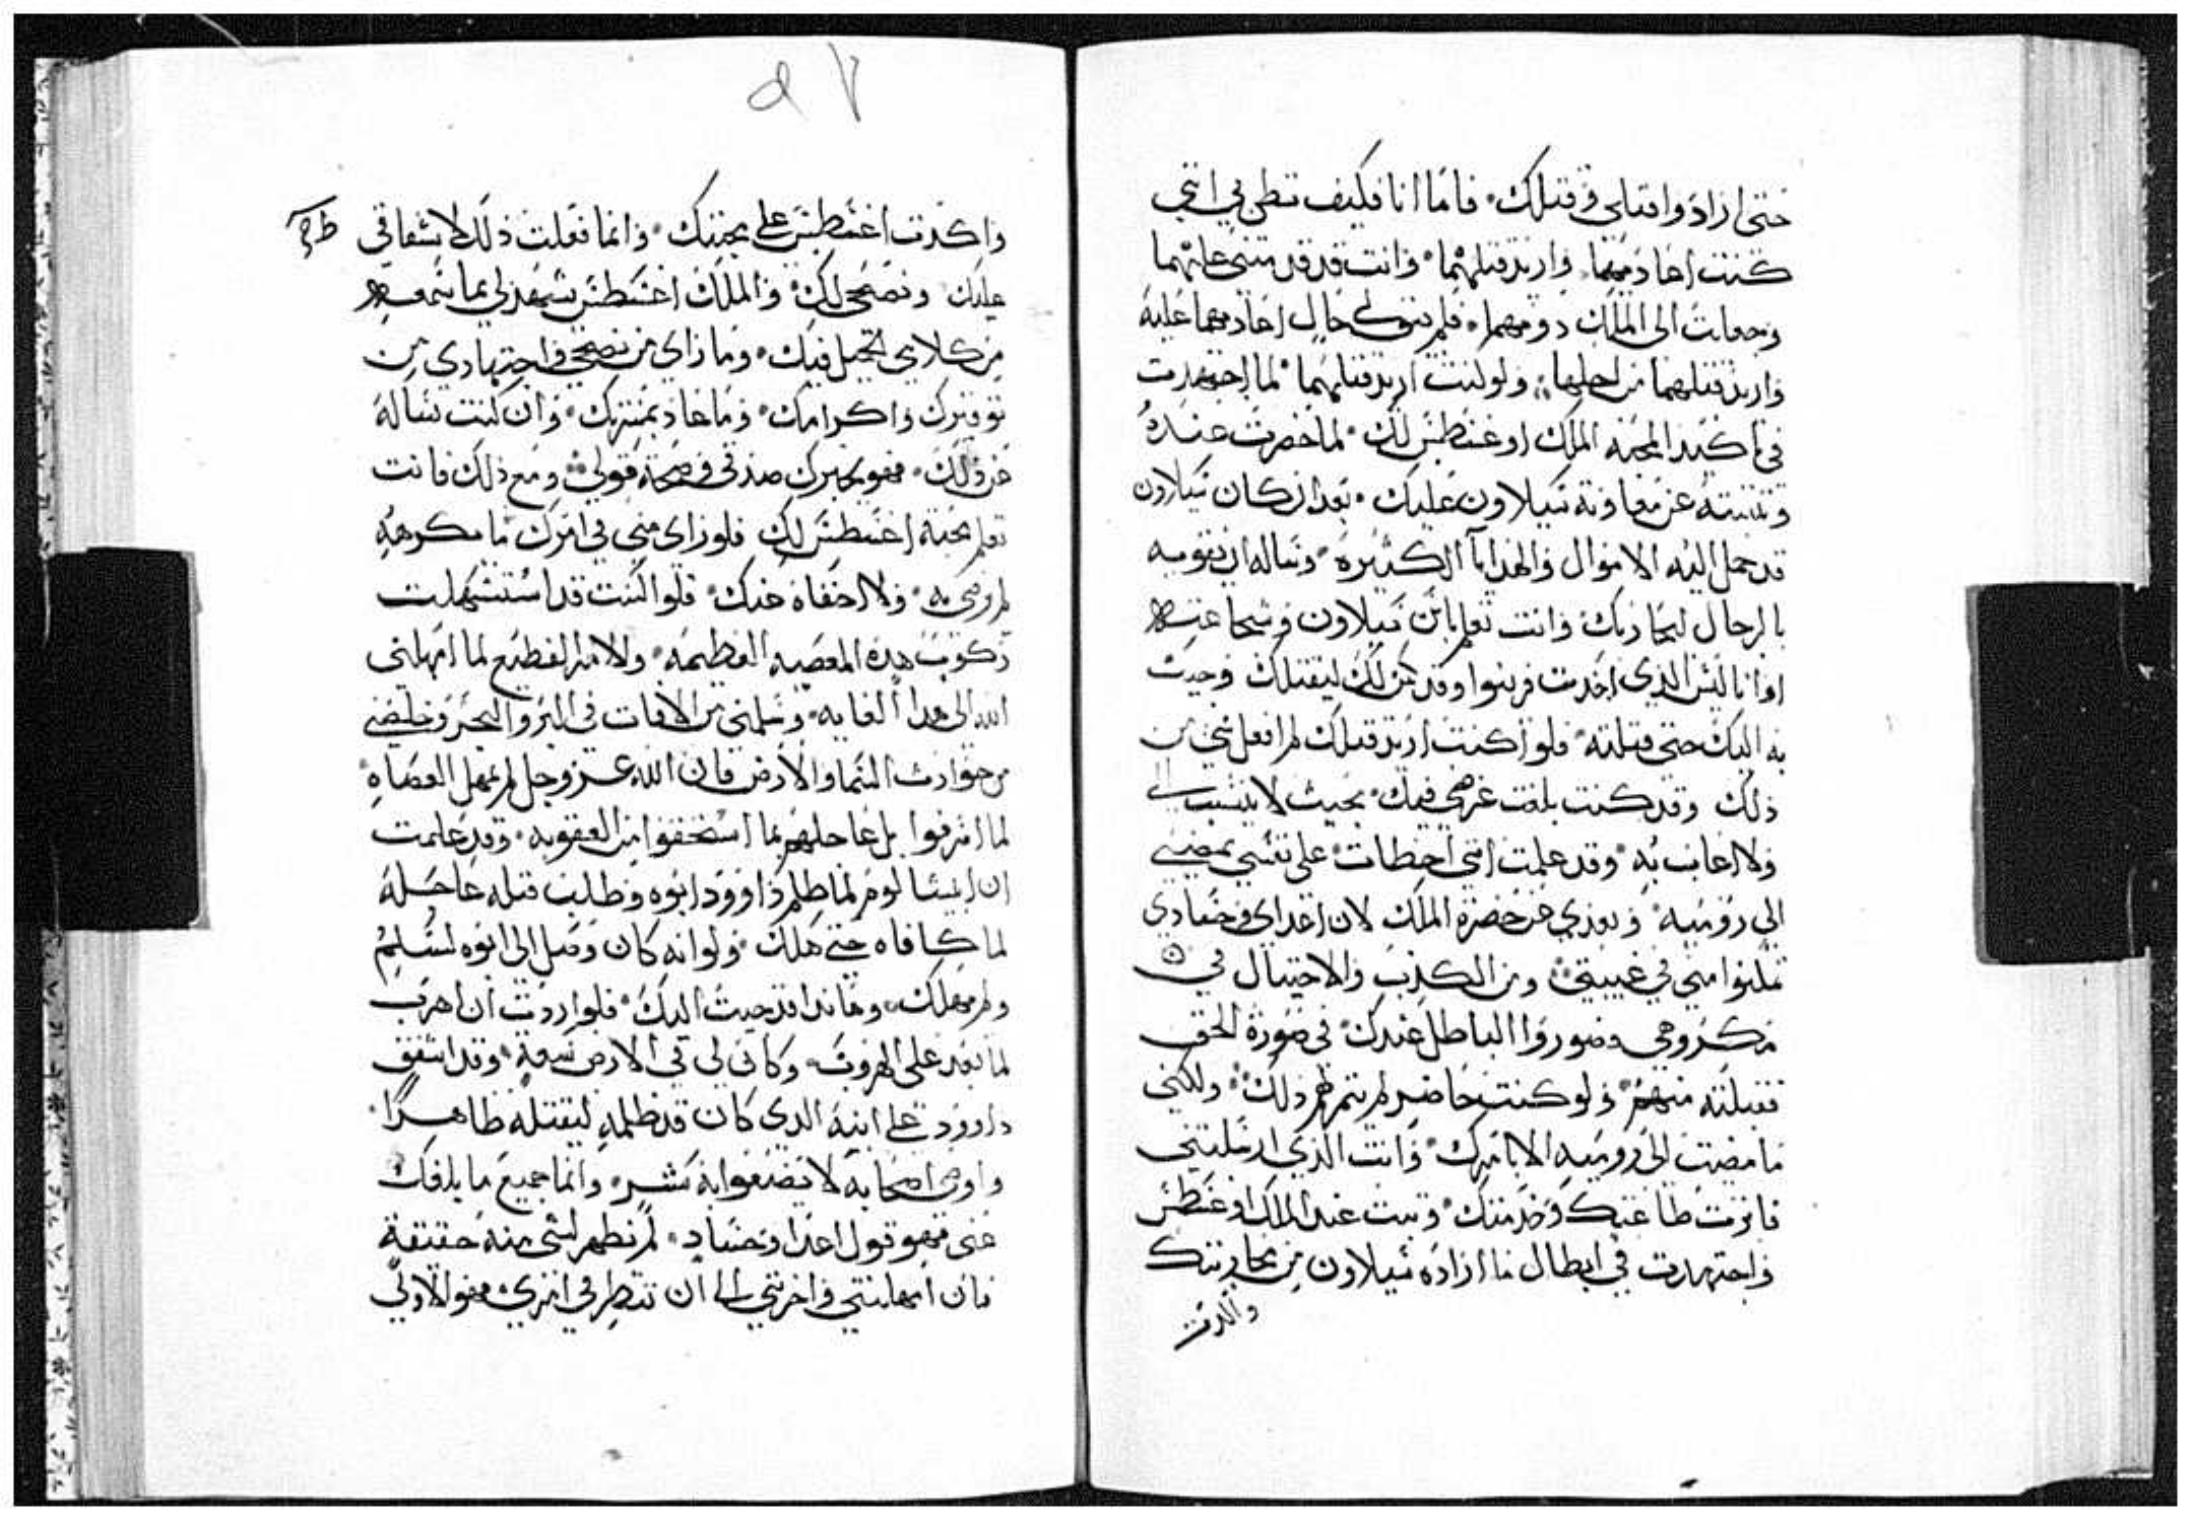 حتى ارادوا قتلي وقتلك فاما انا فكيف تظن بي انني
كنت اعاديهما واريد قتلهما وانت قد قدمتني عليهما
وجعلت الى الملك دونهما فلم يبق لي حال اعاديهما عليه
واريد قتلهما من اجلها ولو كنت اريد قتلهما لما اجتهدت
في تاكيد المحبه الملك اوغسطس لك لما حضرت عنده
وتثنيته عن معاونة سيلاون عليك بعد ان كان سيلاون
قد حمل اليه الاموال والهدايا الكثيره وساله ان يقويه
بالرجال ليحاربك وانت تعلم باس سيلاون وشجاعته
اوانا ليس الذي اخدت فريتوا وقد كمن لك ليقتلك وجيت
به اليك حتى قتلته فلو كنت اريد قتلك لم افعل شي من
ذلك وقد كنت بلغت غرضي فيك بحيث لا ينسب الي
ولا اعاب به وقد علمت انني اخطات على نفسي بمضيي
الى روميه وبعدي عن حضرة الملك لان اعداي وحسادي
تمكنوا مني في غيبتي ومن الكذب والاحتيال في
مكروهي وصوروا الباطل عندك في صورة الحق
فقبلته منهم ولو كنت حاضر لم يتم لهم ذلك ولكني
ما مضيت الى روميه الا بامرك وانت الذي ارسلتني
فالزمت طاعتك وخدمتك وتبت عند الملك اوغسطس
واجتهدت في ابطال ما اراده سيلاون من محاربتك
واكدت
٩٧
واكدت اغسطس على محبتك وانما فعلت ذلك لاشفاقي
عليك ونصحي لك والملك اغسطس يشهد لي بما سمعه
من كلامي الجميل فيك وما راى من نصحي واجتهادي من
توقيرك واكرامك وما عاد بمسرتك وان كنت تساله
عن ذلك فهو يخبرك صدقي وصحة قولي ومع ذلك فانت
تعلم محبة اغسطس لك فلو راى مني في امرك ما يكرهه
لم رضي به ولا اخفاه عنك فلو كنت قد استسهلت
ركوب هذه المعصيه العظيمه والامر الفظيع لما امهلني
الله الى هدا الغايه وسلمني من الافات في البر والبحر وخلصني
من حوادث السما والارض فان الله عز وجل لم يمهل العصاه
لما اسرفوا بل عاجلهم بما استحقوا من العقوبه وقد علمت
ان ابيشالوم لما ظلم داوود ابوه وطلب قتله عاجله
لما كافاه حتى هلك ولو انه كان وصل الى ابوه لسلم
ولم يهلك وهاندا قد جيت اليك فلو اردت ان اهرب
لما بعد على الهروب وكان لي في الارض سعة وقد اشفق
داوود على ابنه الدي كان قد ظلمه ليقتله ظاهرا
واوصى اصحابه لا يصنعوا به شر وانما جميع ما بلغك
عني فهو قول اعدا وحساد لم يظهر لشي منه حقيقة
فان امهلتني واخرتني الى ان تنظر في امري فهو الاولى